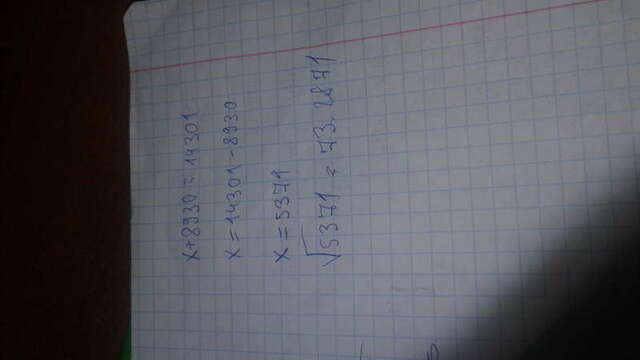 x+8930=14301
x=14301-8930
x=5371
√5371 = 73.2871